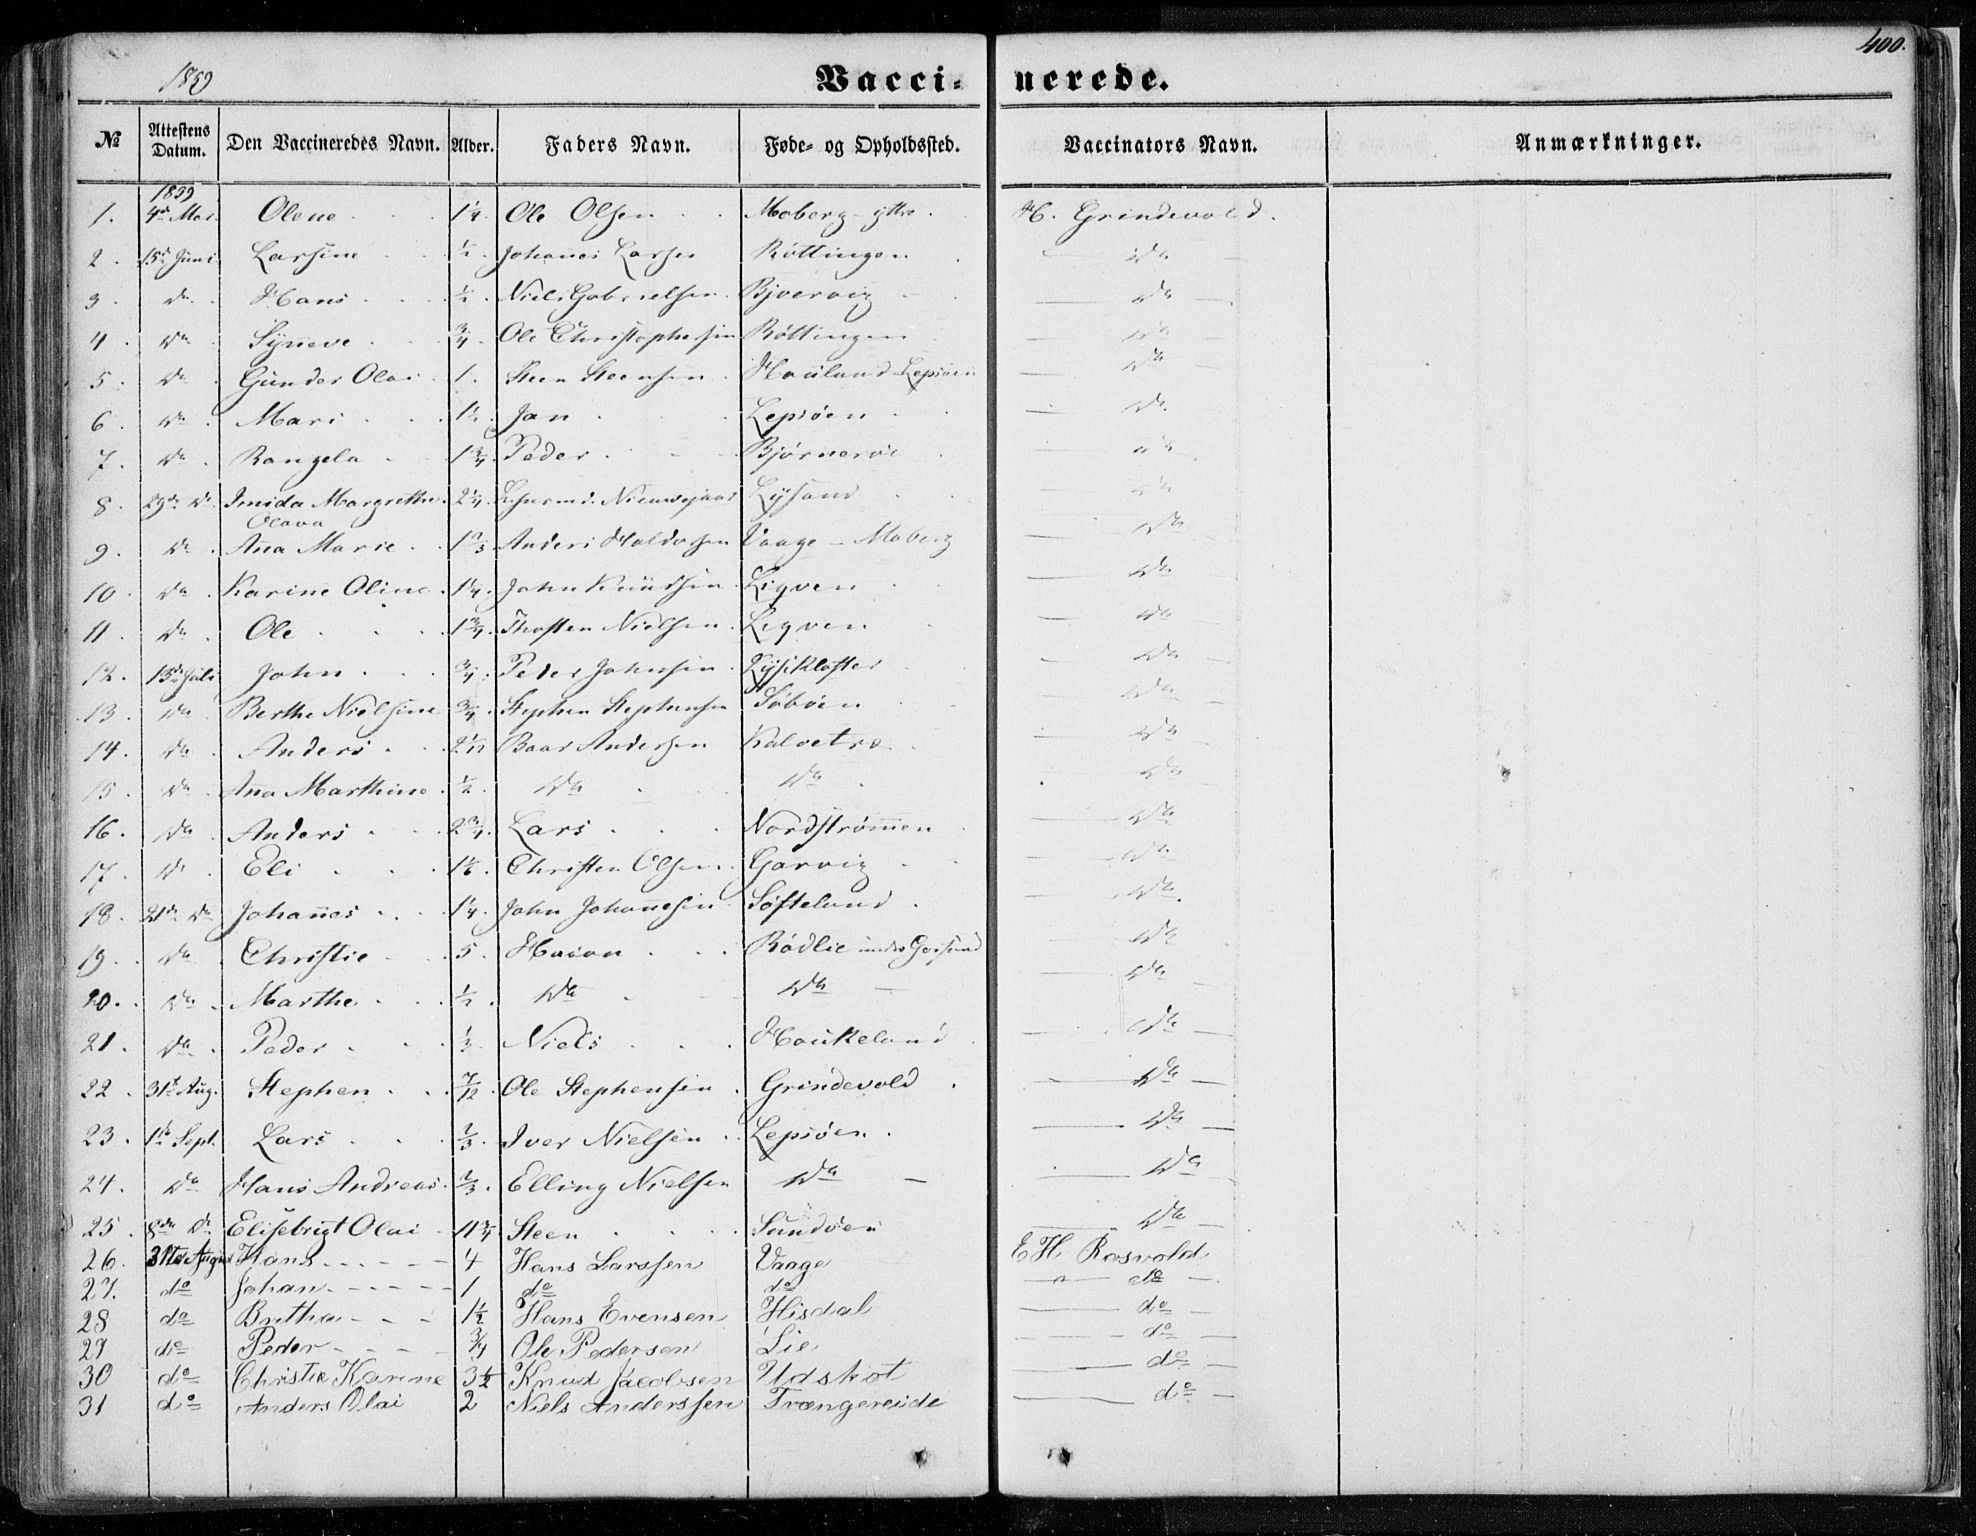 400.
1859
Vacci- nerede.
№ Attestens Datum. Den Vaccineredes Navn. Alder. Faders Navn. Føde- og Opholdssted. Vaccinators Navn. Anmærkninger.
1859
1. 4de Mai Olene 1 1/4 Ole Olsen Moberg ytre. H. Grindevold.
2. 15de Juni Larsine 1/2 Johañes Larsen Røttingen do
3. do Hans 1/2 Niels Gabrielsen Bjørvig do
4. do Sÿneve 3/4 Ole Christophersen Røttingen do
5. do Gunder Olai 1. Steen Steensen Hauland Lepsøen do
6. do Mari 1 1/2 Jan Lepsøen do
7. do Rangela 1 3/4 Peder Bjørnerøe do
8. 29de do Margrethe Olava 2 1/4 Lysand do
9. do Aña Marie 1 2/3 Anders Haldorsen Vaage Moberg do
10. do Karine Oline 1 1/4 John Knudsen Ligven do
11. do Ole 1 3/4 Thosten Nielsen Ligven do
12. 13de Juli John 3/4 Peder Johnsen Lysekloster do
13. do Berthe Nielsine 3/4 Stephen Stephensen Søbøen do
14. do Anders Baar Andersen Kalvetræ do
15. do Aña Marthine 1/2 do do do
16. do Anders 2 3/4 Lars Nordstrømen do
17. do Eli Christen Olsen Garvig do
18. 21de do Johañes 1 1/4 John Johañesen Søfteland do
19. do Christie 5. Hacon Rødlie under Geisund do
20. do Marthe 1/2 do do do
21. do Peder 1/3 Niels Haukeland do
22. 31te Aug. Stephen 7/12 Ole Stephensen Grindevold do
23. 1te Sept. Lars 2/3 Iver Nielsen Lepsøen do
24. do Hans Andreas 2/3 Elling Nielsen do do
25. 8de do Elisebrigt Olai 11 3/4 Steen Sundøen do
26. 31te August Hans 4 Hans Larssen Vaage E H. Rosvold
27. do Johan 1 do do do
28 do Britha 1 1/2 Hans Evensen Hisdal do
29 do Peder 3/4 Ole Pedersen Lie do
30 do Christie Karine 3 1/2 Knud Jacobsen Udskot do
31 do Anders Olai 2 Niels Anderssen Trængereide do